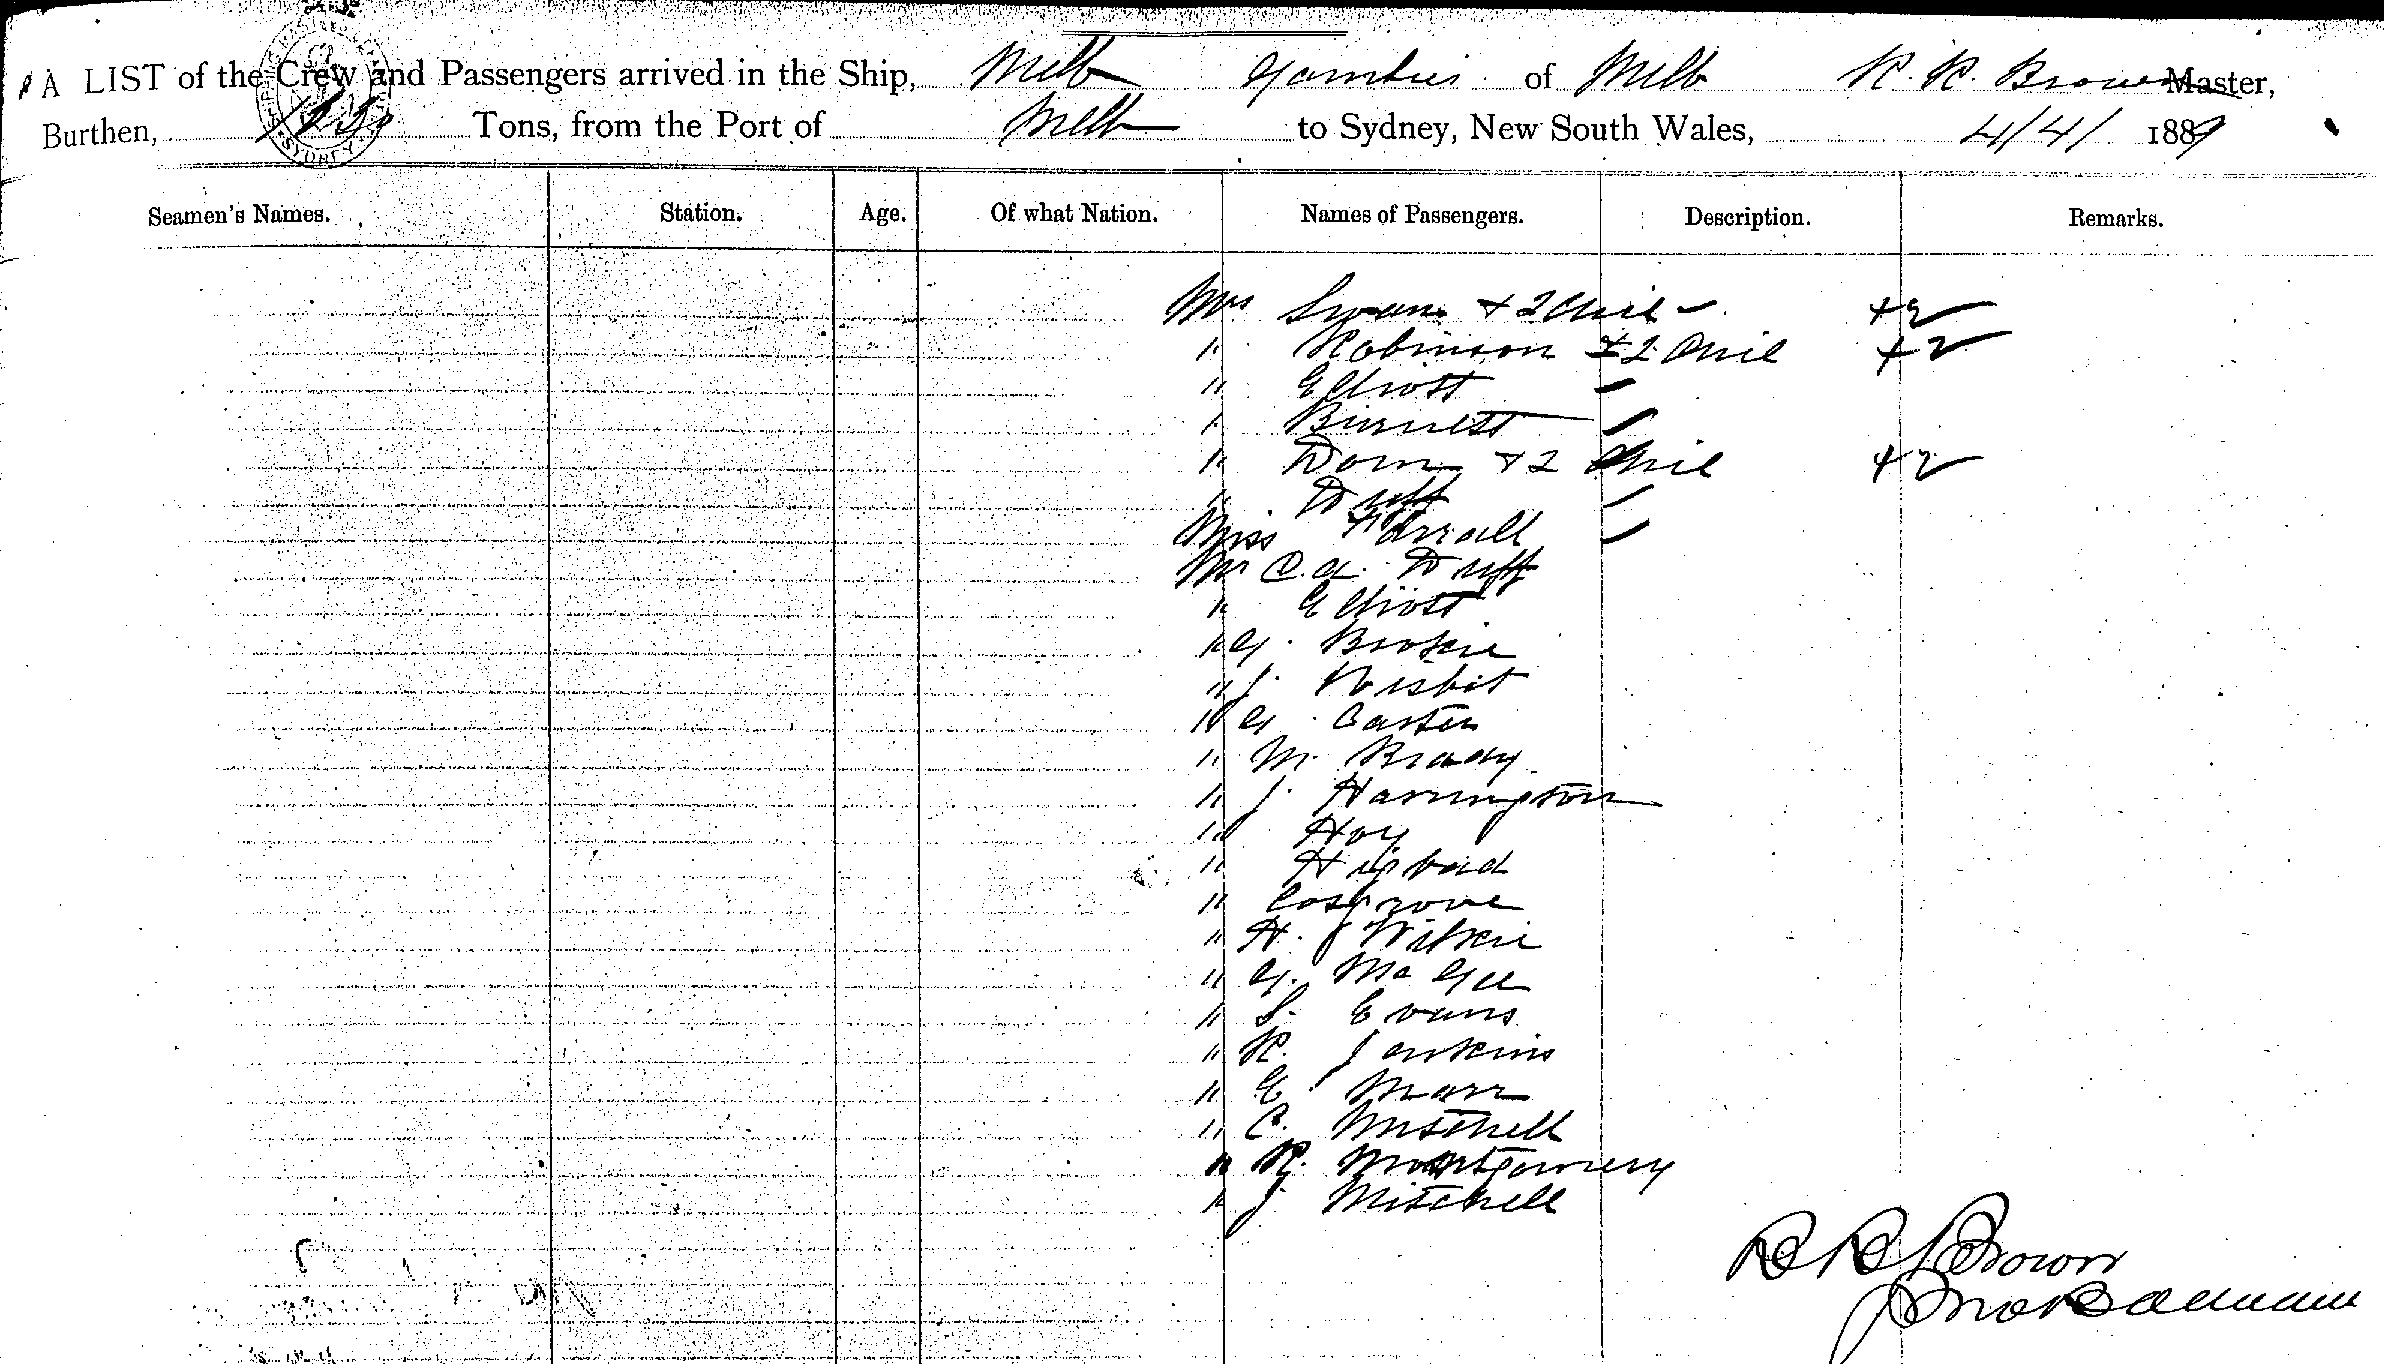 A LIST of the Crew and Passengers arrived in the Ship, Melb Gambier of Melb R. R. Brown Master,
Burthen, Tons, from the Port of Melb to Sydney, New South Wales, 4/4/ 1889
Seamen's Names. Station. Age. Of what Nation. Names of Passengers. Description. Remarks.
Mrs Swan + 2 Chil - +2
" Robinson + 2 Chil +2
" Elliott
" Burnett
" Dorn + 2 Chil +2
" Duff
Miss Farrall
Mr C. G. Duff
" Elliott
" G. Brokie
" J. Nisbit
" G. Carter
" M. Brady
" J. Harrington
" Hoy
" Cosgrove
" H. J Wilkie
" G. McGee
" S. Evans
" R. Jenkins
" E Marr
" C. Mitchell
" R. Montgomery
" J Mitchell
R R Brown